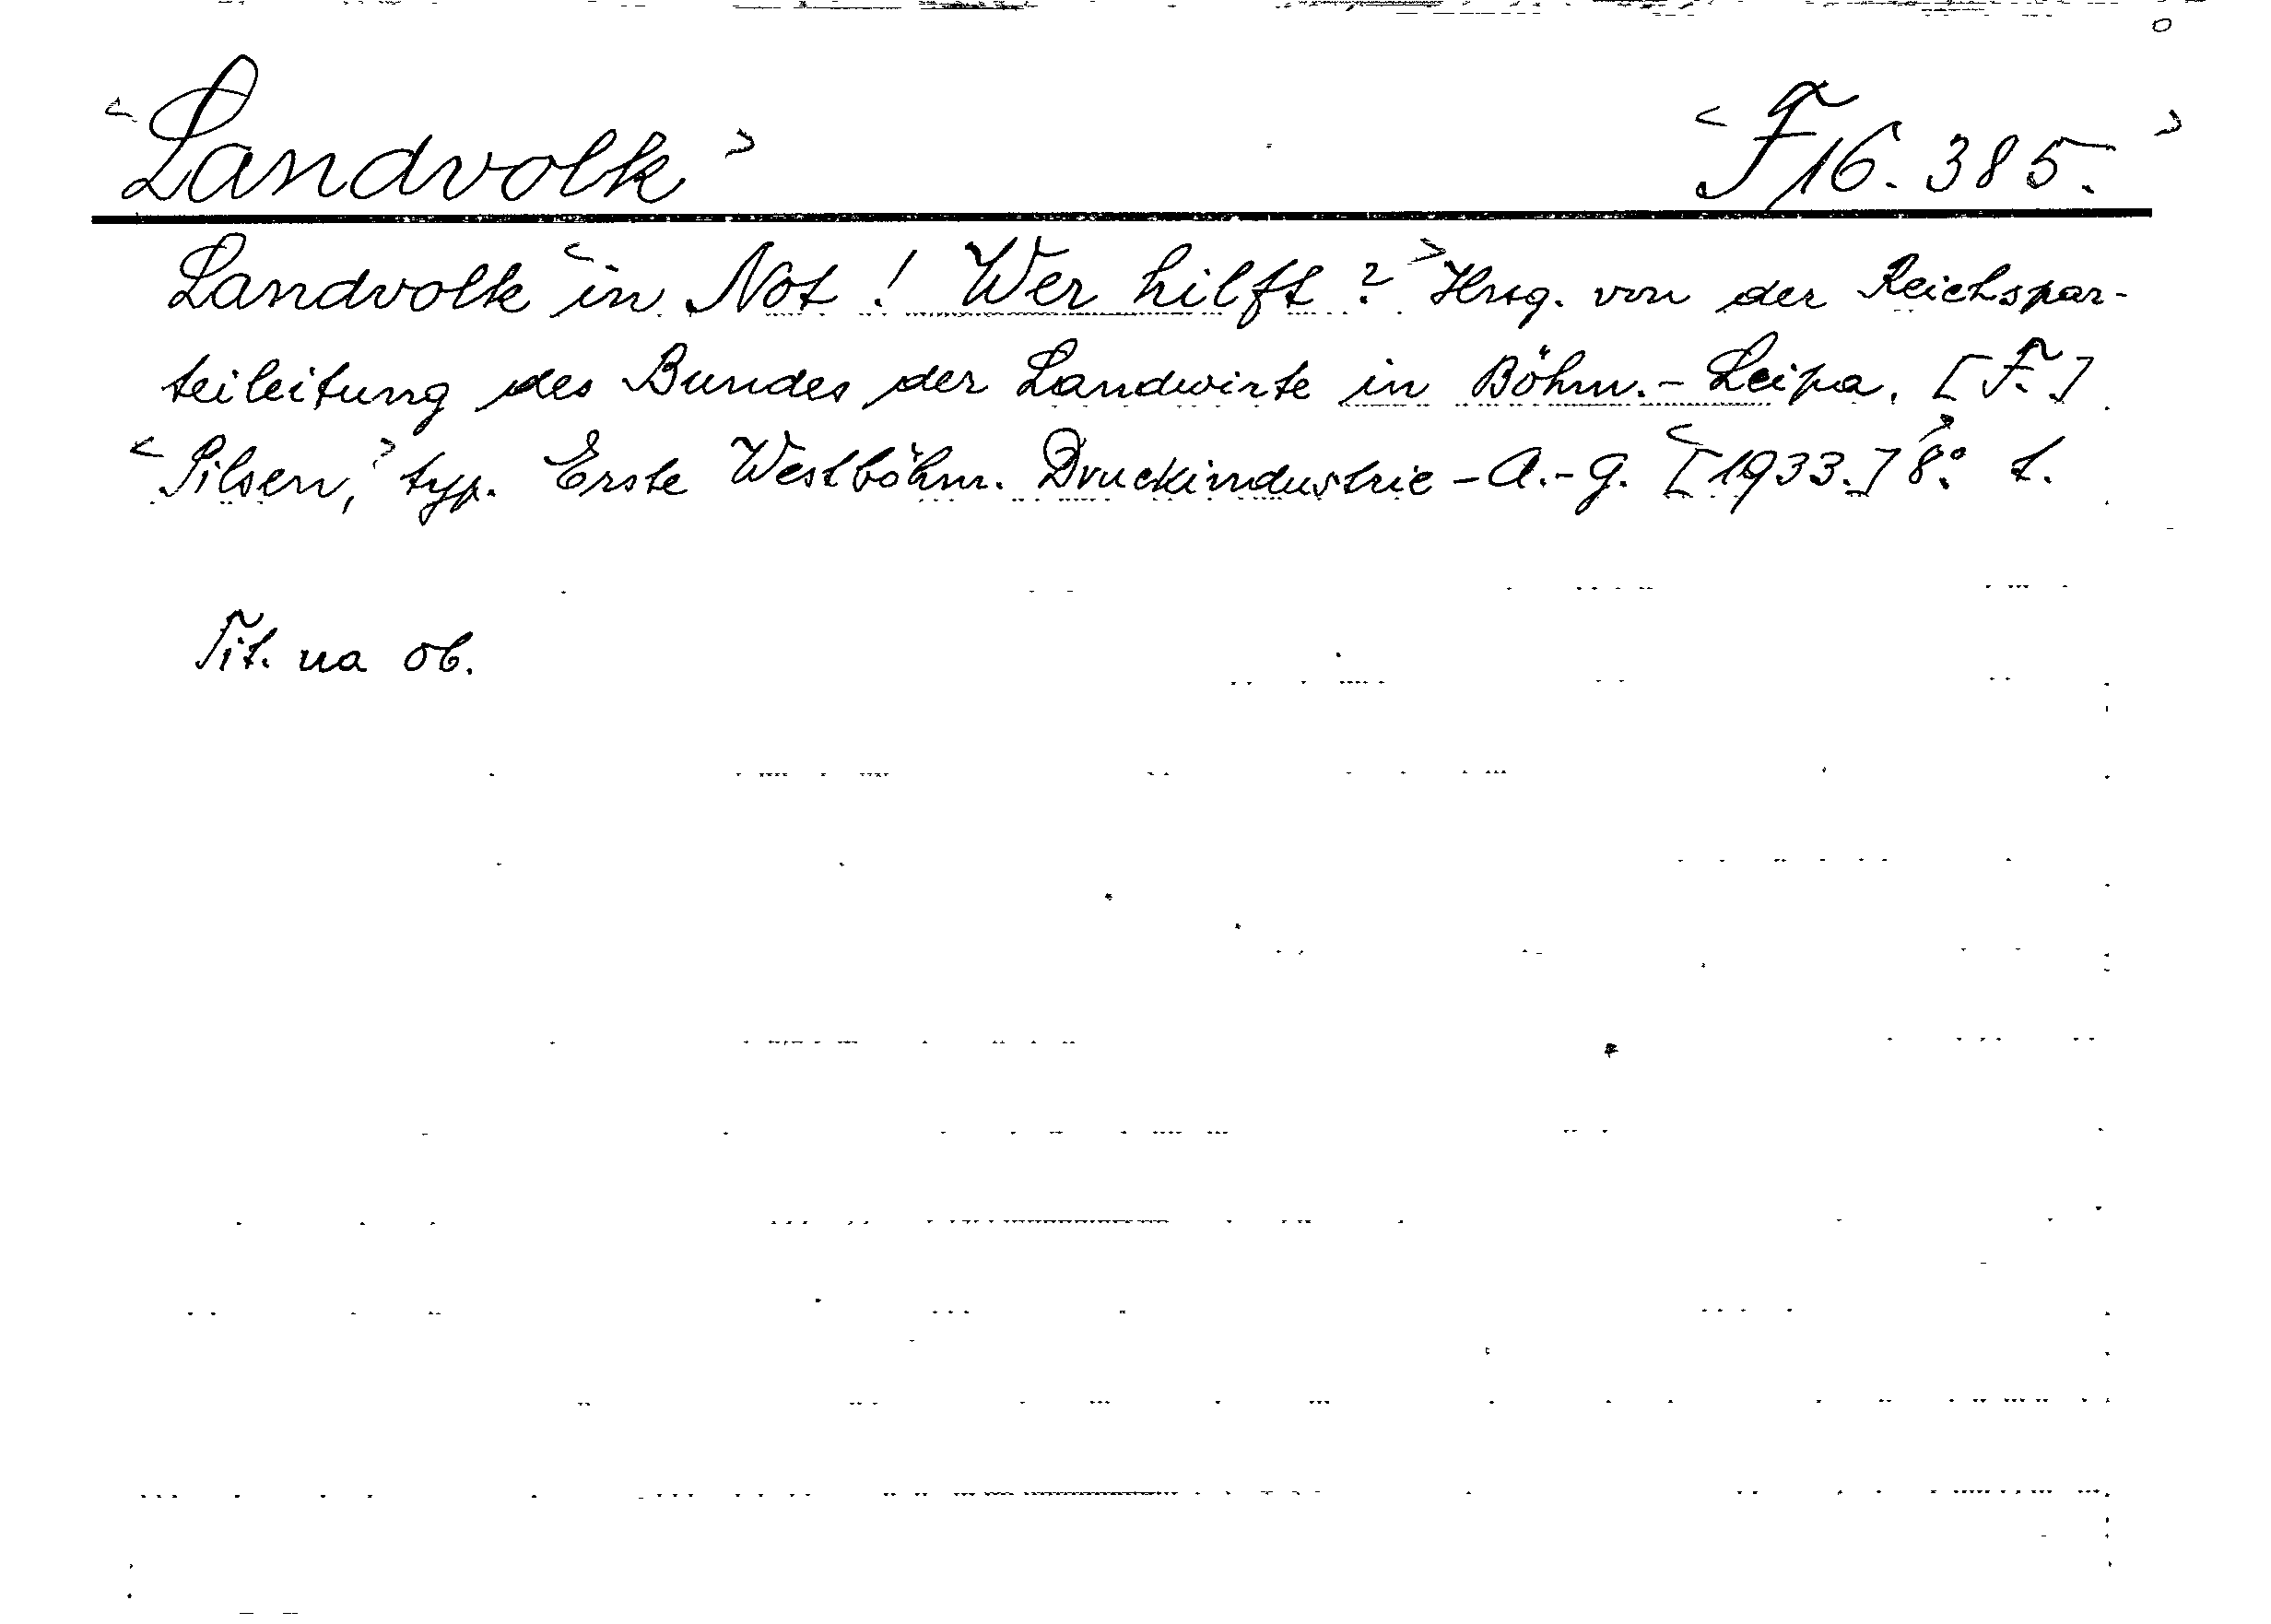 <Landvolk> <F 16.385.>
Landvolk <in Not! Wer hilft?> Hrsg. von der Reichspar-
teileitung des Bundes der Landwirte in Böhm.-Leipa. [F.]
<Pilsen,> typ. Erste Westböhm. Druckindustrie-A.-G. <[1933.]> 8° t.
Tit. na ob.